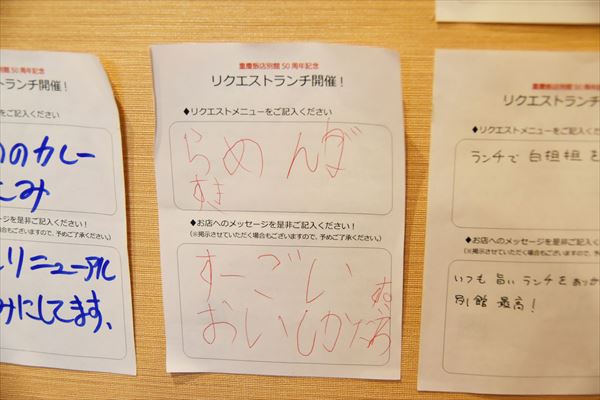 のカレー
み
ストランチ開催！
ューをご記入ください
ージを是非ご記入ください！
合もございますので、予めご了承ください。）
リニューアル
みにしてます、
重慶飯店別館50周年記念
リクエストランチ開催！
◆リクエストメニューをご記入ください
らめんば
すき
◆お店へのメッセージを是非ご記入ください！
（※掲示させていただく場合もございますので、予めご了承ください。）
すーごい
おいしかた
重慶飯店別館50周年記
リクエストランチ
◆リクエストメニューをご記入くださ
ランチで白担担を
◆お店へのメッセージを是非ご記
（※掲示させていただく場合もございますので、
いつも旨いランチをあり
別館最高！